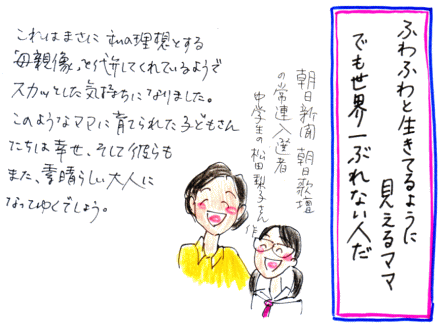 ふわふわと生きてるように
見えるママ
でも世界一ぶれない人だ
朝日新聞 朝日歌壇
の常連入選者
中学生の松田梨子さん 作
これはまさに 私の理想とする
「母親像」を代弁してくれているようで
スカッとした気持ちになりました。
このようなママに育てられた子どもさん
たちは幸せ、そして彼らも
また、素晴らしい大人に
なってゆくでしょう。